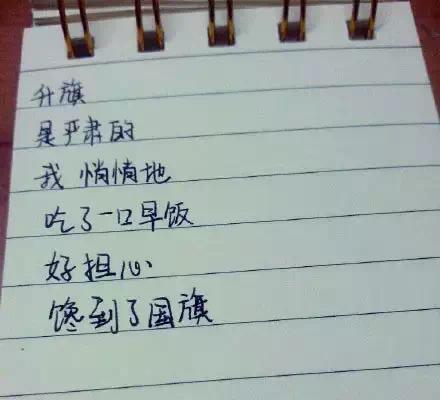 升旗
是严肃的
我悄悄地
吃了一口早饭
好担心
馋到了国旗